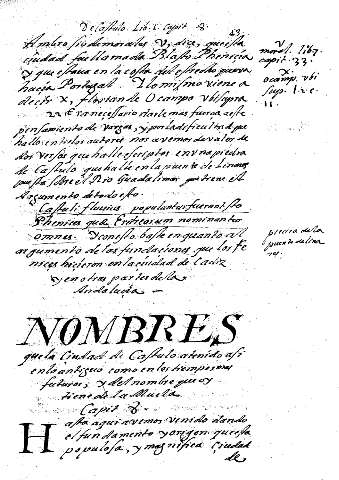 De Castulo. Lib. I. Capit. 8.
49
Ambrosio de morales V, dize, que esta
ciudad fue llamada Blasto Phenicia
y que estava en la costa del estrecho
hacia Portugal. Y lo mismo viene a
dezir X, florian de Ocampo ubi supra.
V
moral. lib 7.
capit. 33.
X
ocamp. ubi
sup. l.
necessario darle mas fuerça a este
pensamiento de Vargas, y por la dificultad que
hallo en estos autores nos avemos de valer de
dos versos que halle escriptos en una piedra
de Castulo que halle en la puente de Linares
puesta sobre el Rio Guadalimar que tiene el
Argumento de todo esto
Castuli fluvia populantur
Phenica que
omnes. Y con esto baste en quanto al
argumento de las fundaciones que los Fe
nices hizieron en la ciudad de Cadiz
y en otras partes de la
Andaluzia
piedra de la
puente de lina
res.
NOMBRES
que la Ciudad de Castulo a tenido asi
en lo antiguo como en los tiempos mas
futuros, y del nombre que oy
tiene de la Muela
Capit 8.
Hasta aqui avemos venido dando
el fundamento y origen que esta
populosa, y magnifica Ciudad
de